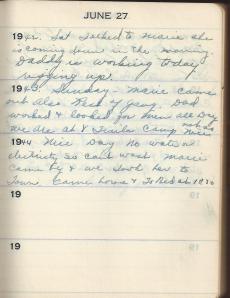 JUNE 27
1942. Sat Talked to Marie she
is coming down in the morning.
Daddy is working today
rigging up.
1943 Sunday - Marie came
out also. Dad
worked & looked for men all Day
we ate at Camp
1944 Nice Day No water or
electricity so cant wash. Marie
came by & we took her to
town Came home & To Bed at
19
19